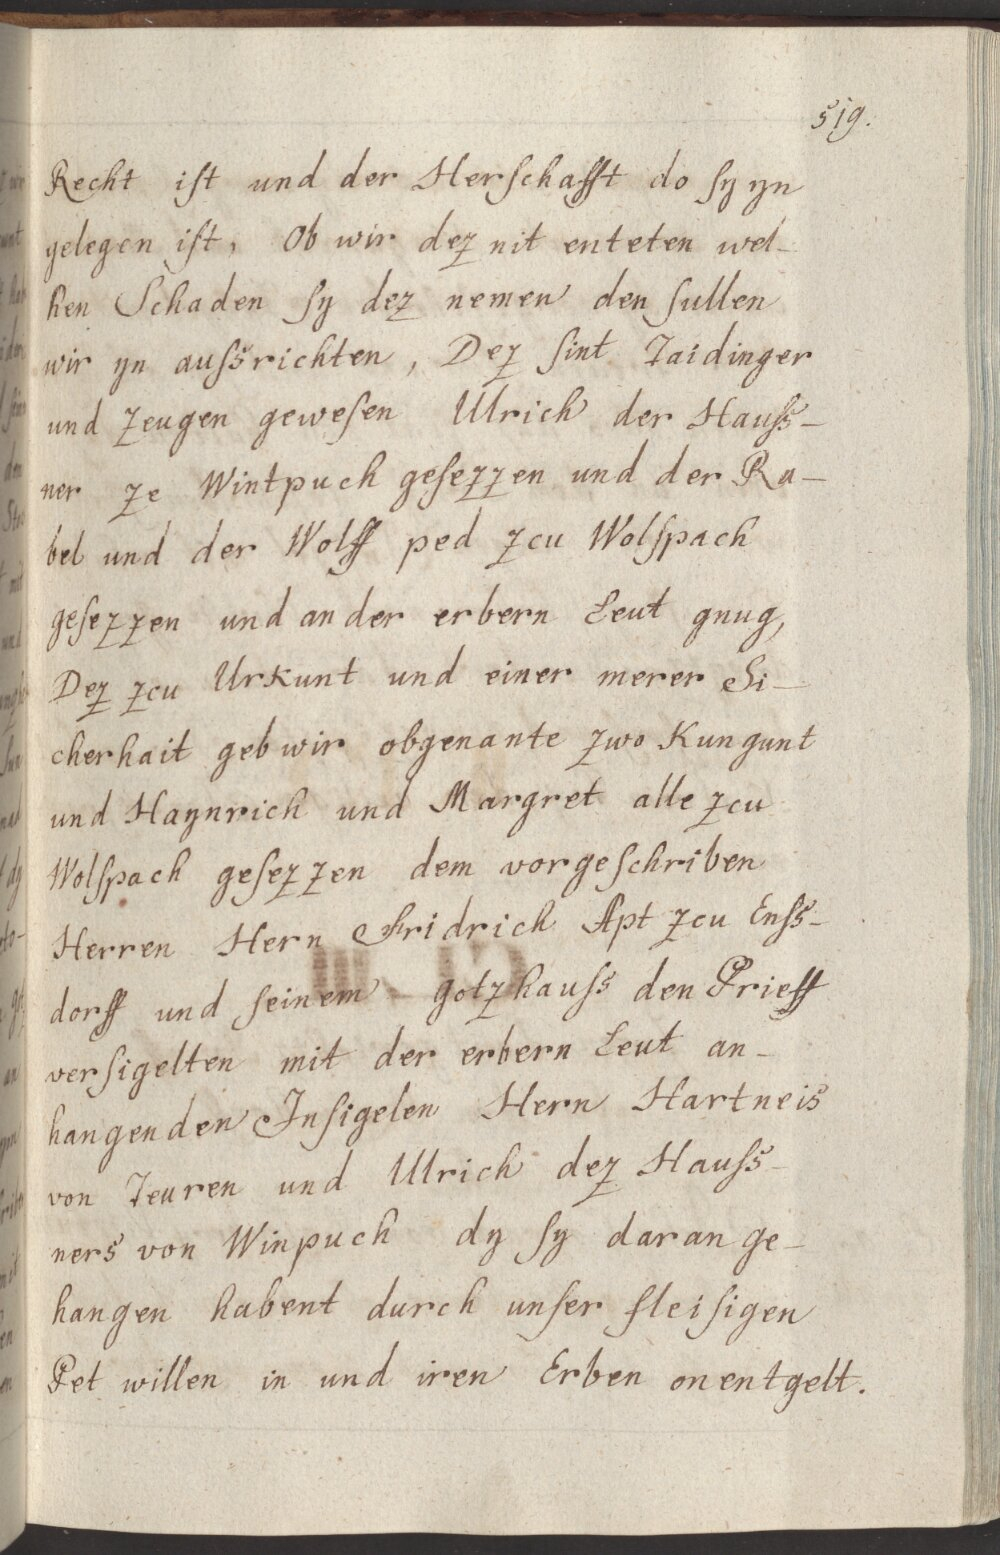 519.
Recht ist und der Herschafft do sy yn
gelegen ist, Ob wir dez nit enteten wel-
hen Schaden sy dez nemen den sullen
wir yn aussrichten, Dez sint Taidinger
und zeugen gewesen Ulrich der Hauss-
ner ze Wintpuch gesezzen und der Ra-
bel und der Wolff ped zcu Wolspach
gesezzen und ander erbern Leut gnug,
Dez zcu Urkunt und einer merer Si-
cherhait geb wir obgenante zwo Kungunt
und Haynrich und Margret alle zcu
Wolspach gesezzen dem vorgeschriben
Herren Hern Fridrich Apt zcu Enss-
dorff und seinem gotzhauss den Prieff
versigelten mit der erbern Leut an-
hangenden Insigelen Hern Hartneis
von Teuren und Ulrich dez Hauss-
ners von Winpuch dy sy daran ge-
hangen habent durch unser fleisigen
Pet willen in und iren Erben onentgelt.